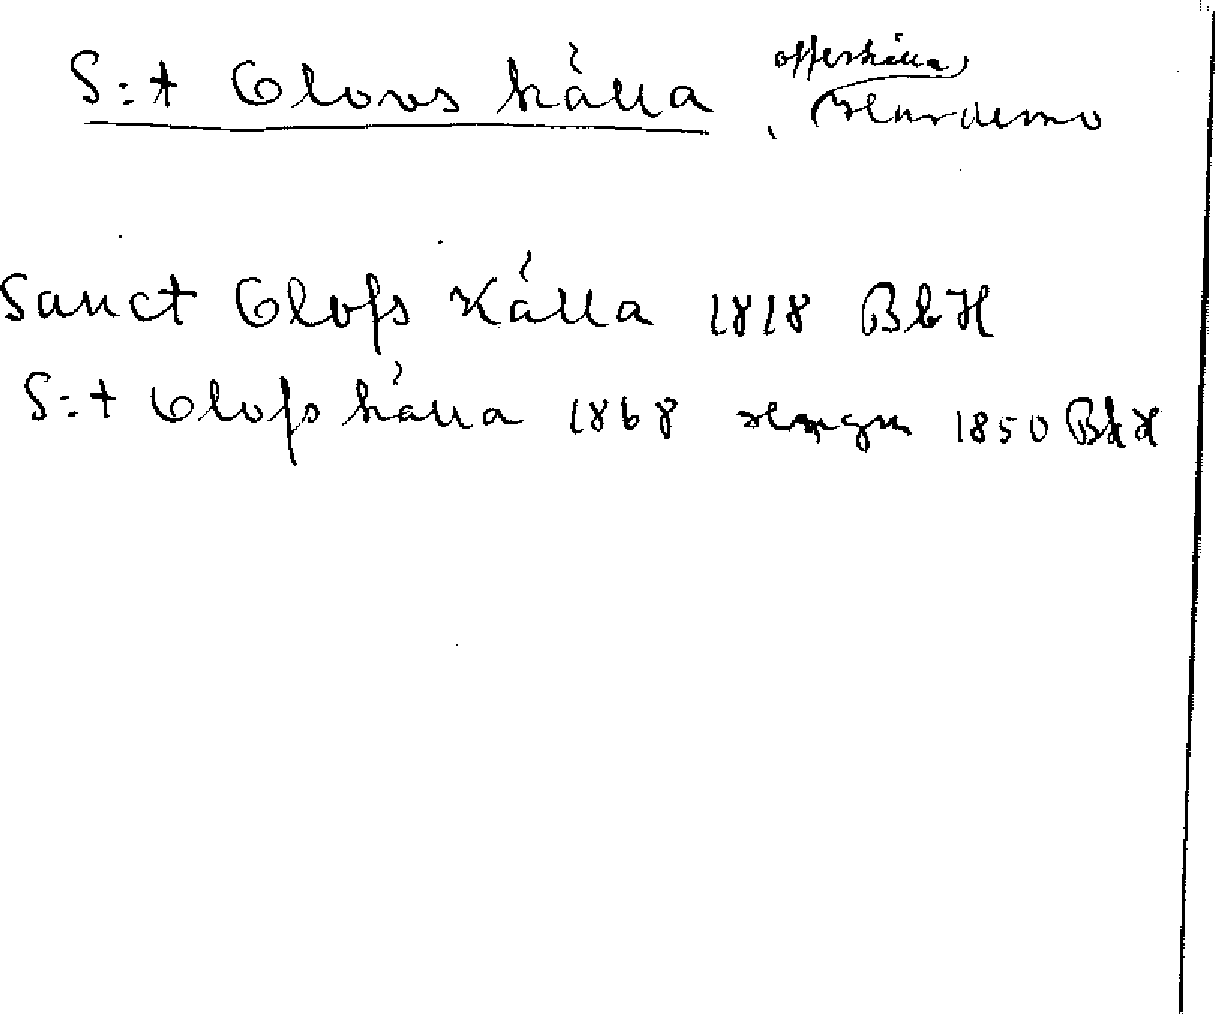 S:t Olovs källa, offerkälla
Sanct Olofs Källa 1818 BbH
S:t Olofs källa 1868 1850 BbH